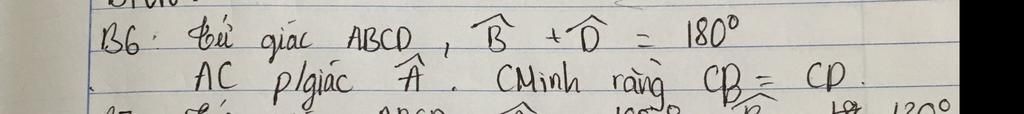 B6. tứ giác ABCD, B̂ + D̂ = 180⁰
AC p/giác Â. CMinh rằng CB = CD.